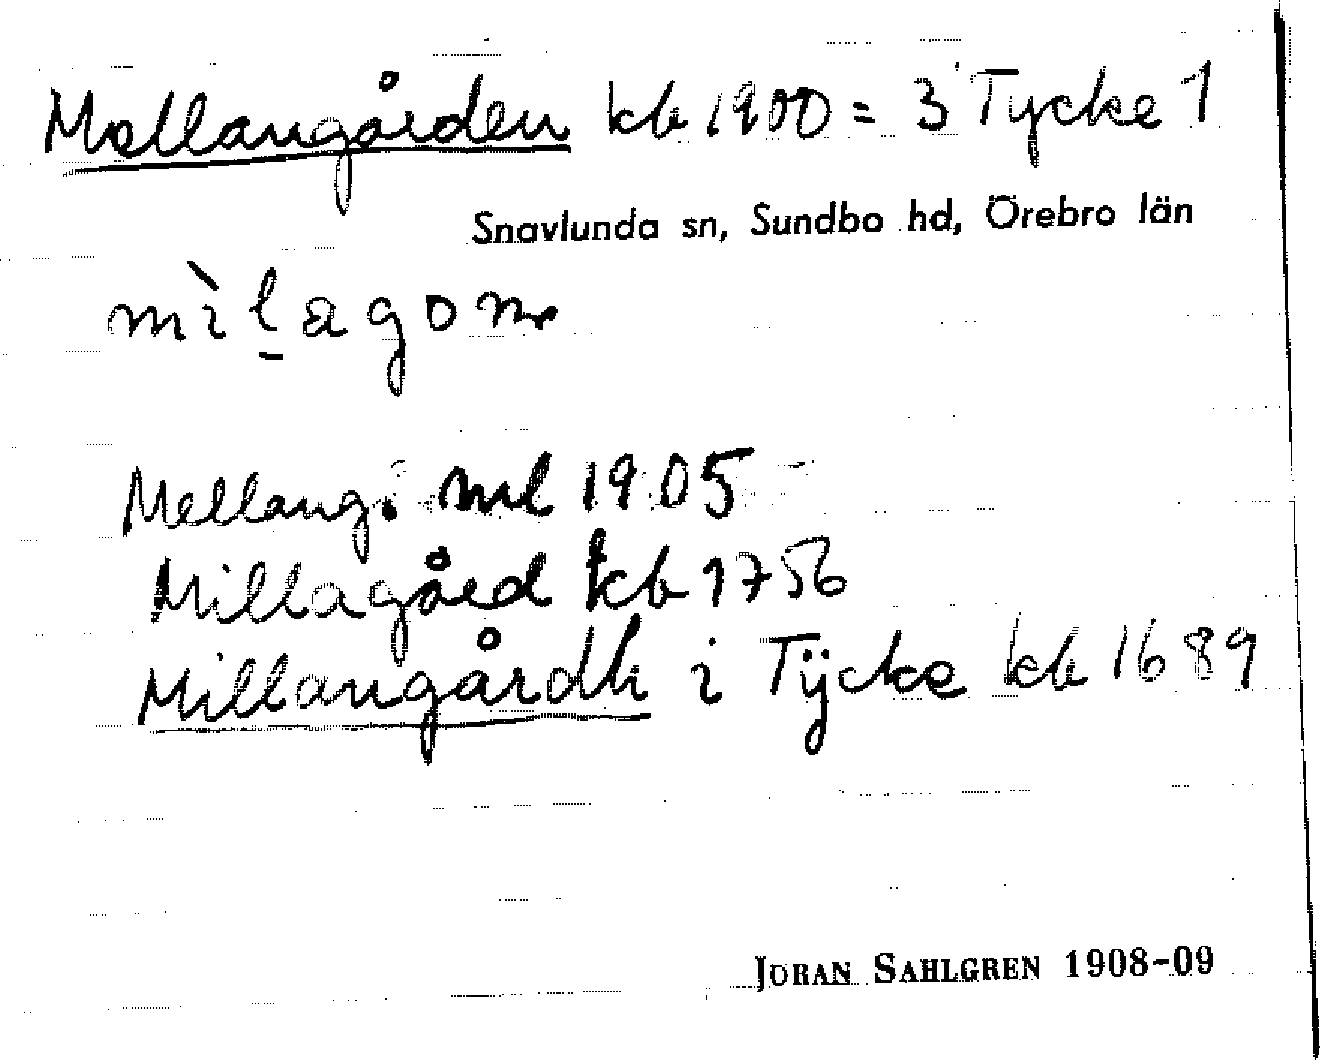 Mellangården kb 1900 = 3 Tycke 1
Snavlunda sn, Sundbo hd, Örebro län
mìlagoṇ
Mellang: ml 1905
Millagård kb 1756
Millangårdh i Tÿcke kb 1689
JÖRAN SAHLGREN 1908-09